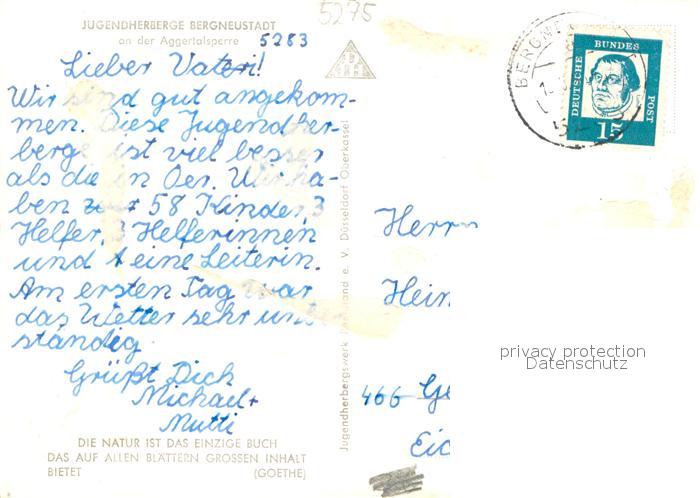 5275
JUGENDHERBERGE BERGNEUSTADT
an der Aggertalsperre 5283
Lieber Vater!
Wir sind gut angekom-
men. Diese Jugendher-
berge ist viel besser
als die in Oer. Wir ha-
ben 58 Kinder, 3
Helfer, 3 Helferinnen
und eine Leiterin.
Am ersten Tag war
das Wetter sehr unbe
ständig.
Grüßt Dich
Michael +
Mutti
DIE NATUR IST DAS EINZIGE BUCH
DAS AUF ALLEN BLÄTTERN GROSSEN INHALT
BIETET (GOETHE)
Jugendherbergswerk Rheinland e. V. Düsseldorf Oberkassel
BERGNE
DEUTSCHE BUNDES POST
15
Herrn
Hein
466 Ge
Eic
privacy protection
Datenschutz